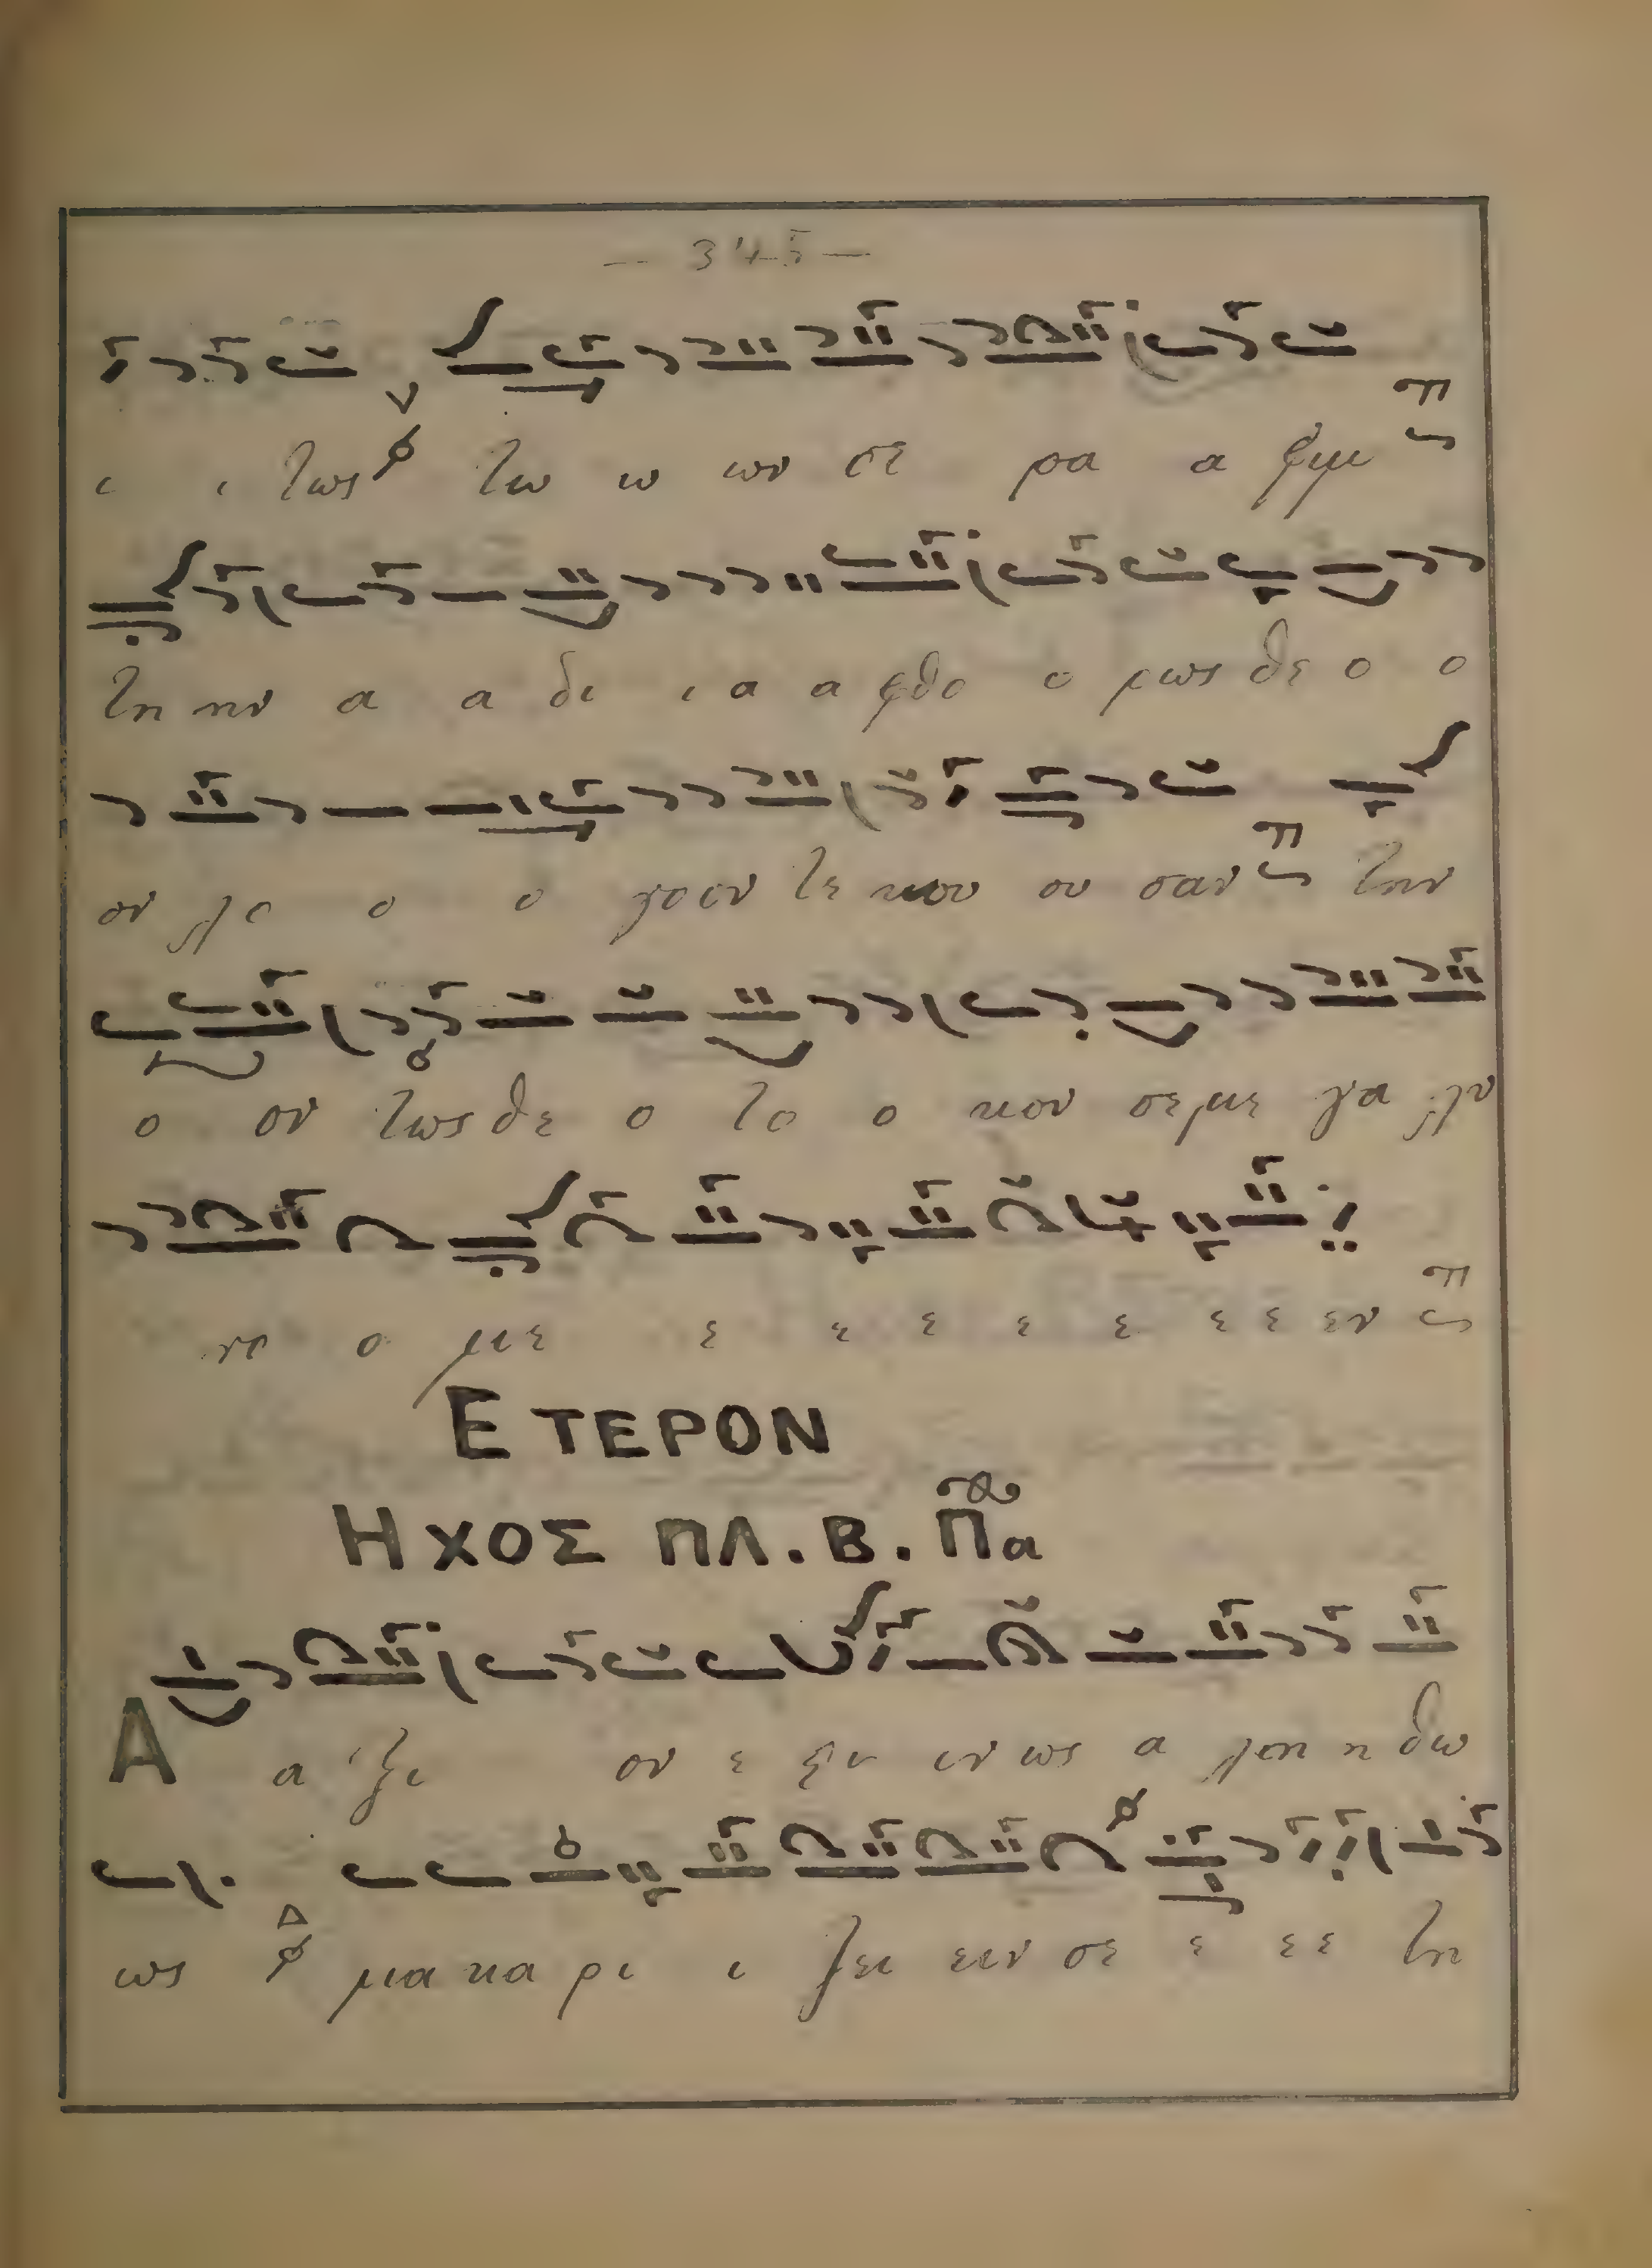 — 345 —
ι ι τως τω ω ων σε ρα α φιμ
τη ην α α δι ι α α φθο ο ρως θε ο ο
ον λο ο ο γον τε κου ου σαν την
ο ον τως θε ο το ο κον σε με γα λυ
νο ο με ε ε ε ε ε ε ε εν
ΕΤΕΡΟΝ
ΗΧΟΣ ΠΛ. Β. Πα
Α α ξι ον ε στι ιν ως α λη η θω
ως μα κα ρι ι ζει ειν σε ε ε ε τη